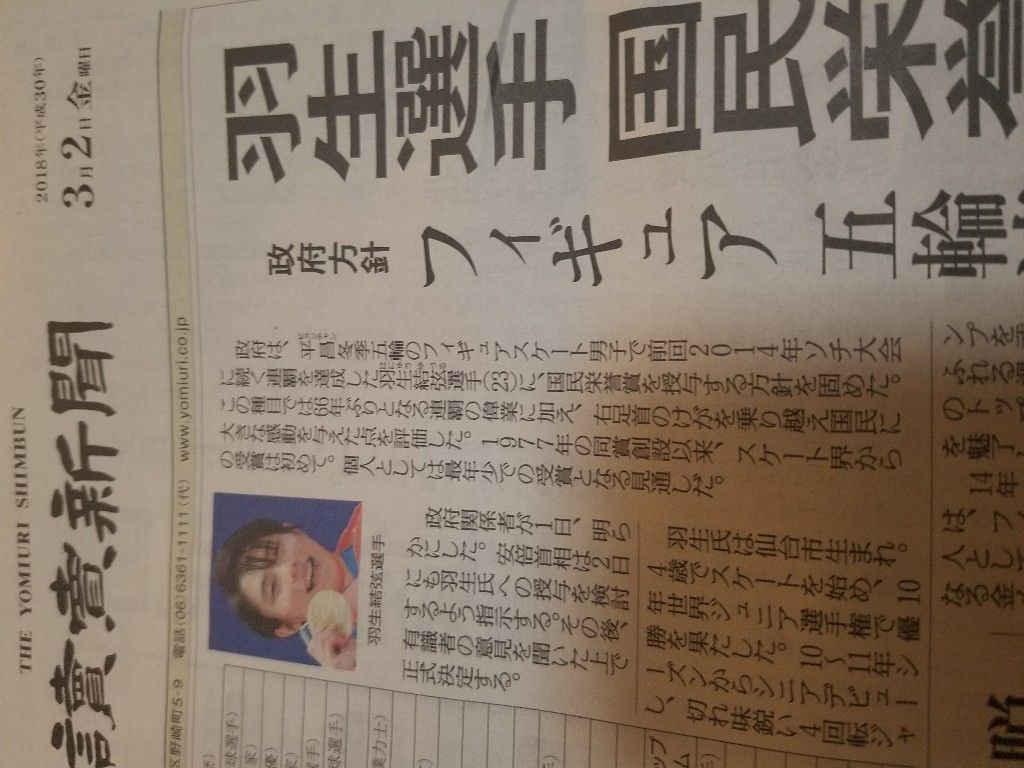 THE YOMIURI SHIMBUN
讀賣新聞
2018年(平成30年)
3月2日金曜日
区野崎町5-9 電話(06)6361-1111(代) www.yomiuri.co.jp
羽生選手 国民栄誉
政府方針
フィギュア 五輪
政府は、平昌冬季五輪のフィギュアスケート男子で前回2014年ソチ大会
に続く連覇を達成した羽生結弦選手(23)に、国民栄誉賞を授与する方針を固めた。
この種目では66年ぶりとなる連覇の偉業に加え、右足首のけがを乗り越え国民に
大きな感動を与えた点を評価した。1977年の同賞創設以来、スケート界から
の受賞は初めて。個人としては最年少での受賞となる見通しだ。
羽生結弦選手
政府関係者が1日、明ら
かにした。安倍首相は2日
にも羽生氏への授与を検討
するよう指示する。その後、
有識者の意見を聞いた上で
正式決定する。
羽生氏は仙台市生まれ。
4歳でスケートを始め、10
年世界ジュニア選手権で優
勝を果たした。10〜11年シ
ーズンからシニアデビュー
し、切れ味鋭い4回転ジャ
ンプを
ふれる
のトップ
を魅了
14年
は、フ
人とし
なる金
球選手)
家)
優)
手)
球選手)
業力士)